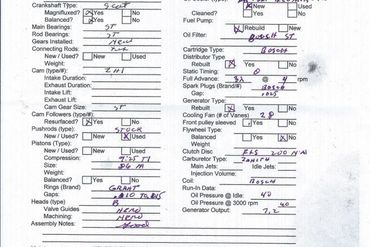 Crankshaft Type:
Magnufluxed? Yes No
Balanced? Yes No
Main Bearings: ST
Rod Bearings: ST
Gears Installed: NEW
Connecting Rods:
New / Used? New Used
Weight:
Cam (type/#):
Intake Duration:
Exhaust Duration:
Intake Lift:
Exhaust Lift:
Cam Gear Size: ST
Cam Followers (type):
Resurfaced? Yes No
Pushrods (type): STOCK
New / Used? New Used
Pistons (Type):
New / Used? New Used
Compression:
Size: 86 M
Weight:
Balanced? Yes No
Rings (Brand) GRANT
Gaps:
Heads (type) B
Valve Guides: NEW
Machining: NEW
Assembly Notes:
New Used
Cleaned? Yes No
Fuel Pump:
Rebuild New
Oil Filter:
Cartridge Type: BOSCH
Distributor Type
Rebuilt Yes No
Static Timing: 0
Full Advance: 32 @ 4 rpm
Spark Plugs (Brand/#) BOSCH
Gap:
Generator Type:
Rebuilt Yes No
Cooling Fan (# of Vanes) 28
Front pulley sleeved Yes No
Flywheel Type:
Balanced? Yes No
Clutch Disc 200 MM
Carburetor Type: ZENITH
Main Jets: Idle Jets:
Injection Volume:
Coil: BOSCH
Run-In Data:
Oil Pressure @ Idle: 40
Oil Pressure @ 3000 rpm 40
Generator Output: 7.2